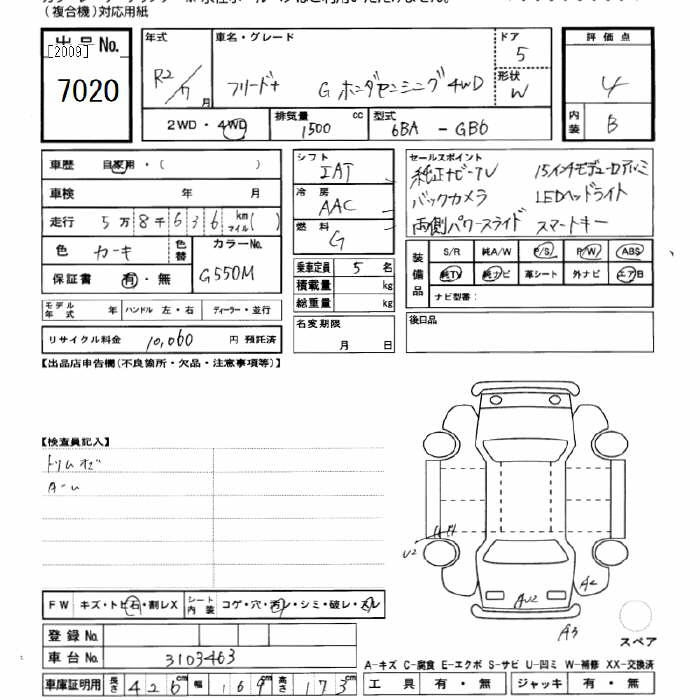 (複合機)対応用紙
出品No. [2009] 7020
年式 R2/7月
車名・グレード フリード+ G ホンダセンシング 4WD
ドア 5
形状 W
評価点 4
内装 B
2WD・4WD
排気量 1500 cc
型式 6BA - GB6
車歴 自家用・( )
車検 年 月
走行 5万8千636 km マイル( )
色 カーキ
色替
カラーNo. G550M
保証書 有・無
モデル年式 年
ハンドル 左・右
ディーラー・並行
リサイクル料金 10,060 円 預託済
シフト IAT
冷房 AAC
燃料 G
乗車定員 5 名
積載量 kg
総重量 kg
名変期限 月 日
セールスポイント
純正ナビ・TV 15インチモデューロアルミ
バックカメラ LEDヘッドライト
両側パワースライド スマートキー
装備品 S/R 純A/W P/S P/W ABS
純TV 純ナビ 革シート 外ナビ エアB
ナビ型番:
後日品
【出品店申告欄(不良箇所・欠品・注意事項等)】
【検査員記入】
FW キズ・トビ石・割レX
シート内装 コゲ・穴・汚レ・シミ・破レ・スレ
登録No.
車台No. 3103463
車庫証明用 長さ 426cm 幅 169cm 高さ 173cm
U2
AU2
A3
スペア
A-キズ C-腐食 E-エクボ S-サビ U-凹ミ W-補修 XX-交換済
工具 有・無
ジャッキ 有・無